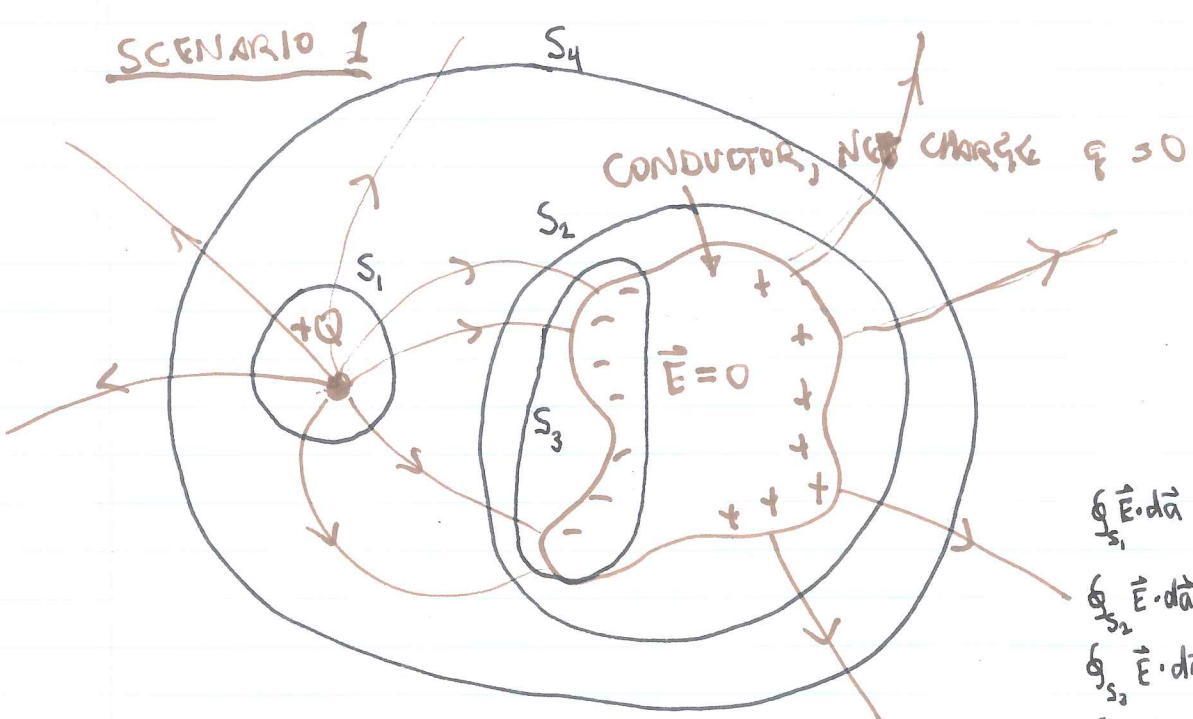 SCENARIO 1
S₄
CONDUCTOR, NET CHARGE q = 0
S₂
S₁
+Q
E⃗ = 0
S₃
∮_S₁ E⃗·da⃗
∮_S₂ E⃗·da⃗
∮_S₃ E⃗·d